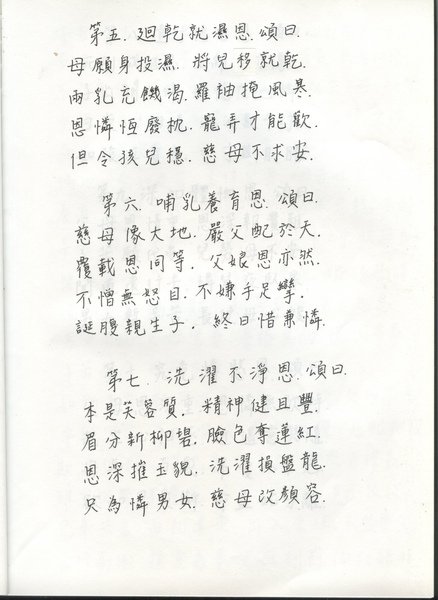 第五. 迴乾就濕恩. 頌曰.
母願身投濕. 將兒移就乾.
兩乳充饑渴. 羅袖掩風寒.
恩憐恆廢枕. 寵弄才能歡.
但令孩兒穩. 慈母不求安.
第六. 哺乳養育恩. 頌曰.
慈母像大地. 嚴父配於天.
覆載恩同等. 父娘恩亦然.
不憎無怒目. 不嫌手足攣.
誕腹親生子. 終日惜兼憐.
第七. 洗濯不淨恩. 頌曰.
本是芙蓉質. 精神健且豐.
眉分新柳碧. 臉色奪蓮紅.
恩深摧玉貌. 洗濯損盤龍.
只為憐男女. 慈母改顏容.